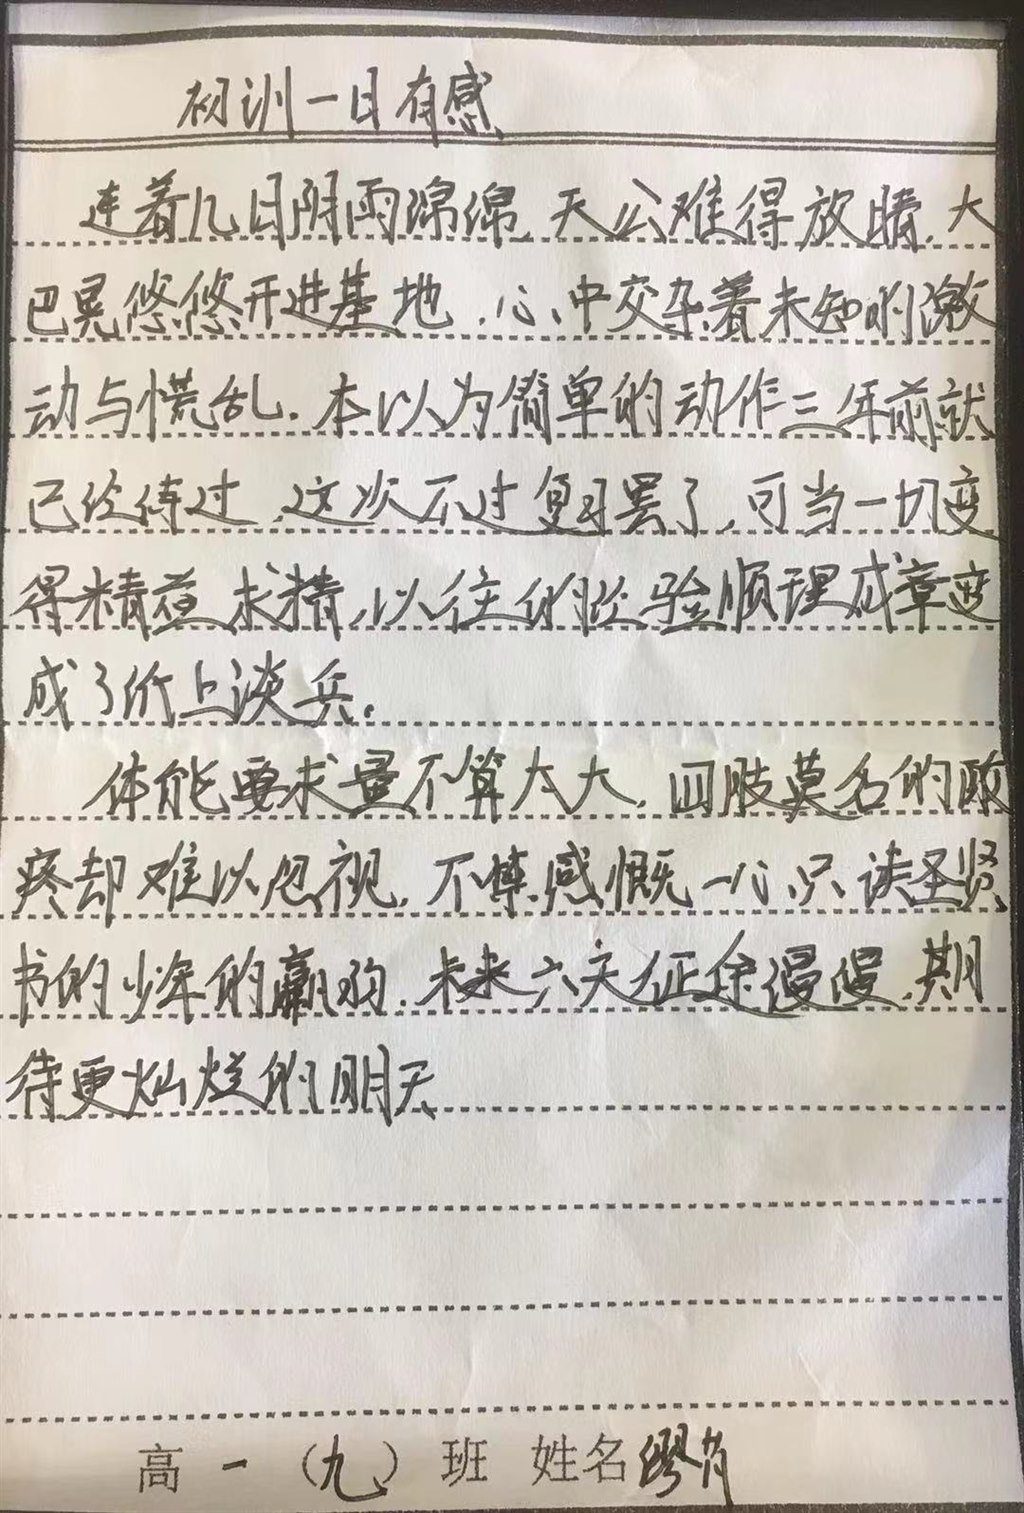 初训一日有感
连着几日阴雨绵绵,天公难得放晴,大
巴晃悠悠开进基地,心中交杂着未知的激
动与慌乱.本以为简单的动作三年前就
已经练过,这次不过复习罢了,可当一切变
得精益求精,以往的经验顺理成章变
成了价上谈兵.
体能要求量不算太大,四肢莫名的酸
疼却难以忽视,不惮感慨一心只读圣贤
书的少年的羸弱,未来六天征途漫漫,期
待更灿烂的明天
高一(九)班 姓名缪